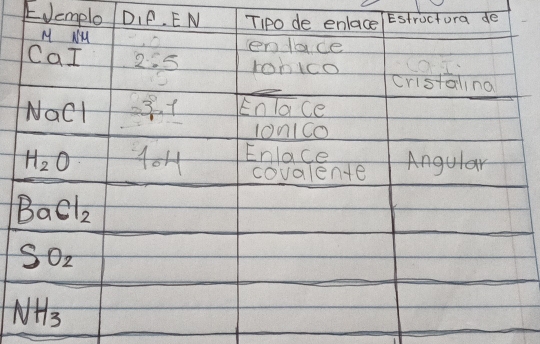 EJemplo DIF. EN TIPO de enlace Estructura de
M NM
CaI 2.5 enlace ionico cristalina
NaCl Enlace ionico
H₂O 1.4 Enlace covalente Angular
BaCl₂
SO₂
NH₃